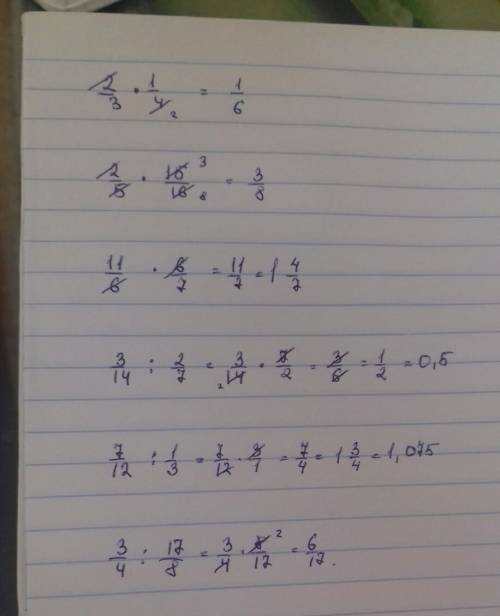 2/3 · 1/4 2 = 1/6
2/5 · 15/16 3 8 = 3/8
11/6 · 6/7 = 11/7 = 1 4/7
3/14 : 2/7 = 3/14 2 · 7/2 = 3/6 = 1/2 = 0,5
7/12 : 1/3 = 7/12 · 3/1 = 7/4 = 1 3/4 = 1,075
3/4 : 17/8 = 3/4 · 8/17 2 = 6/17.